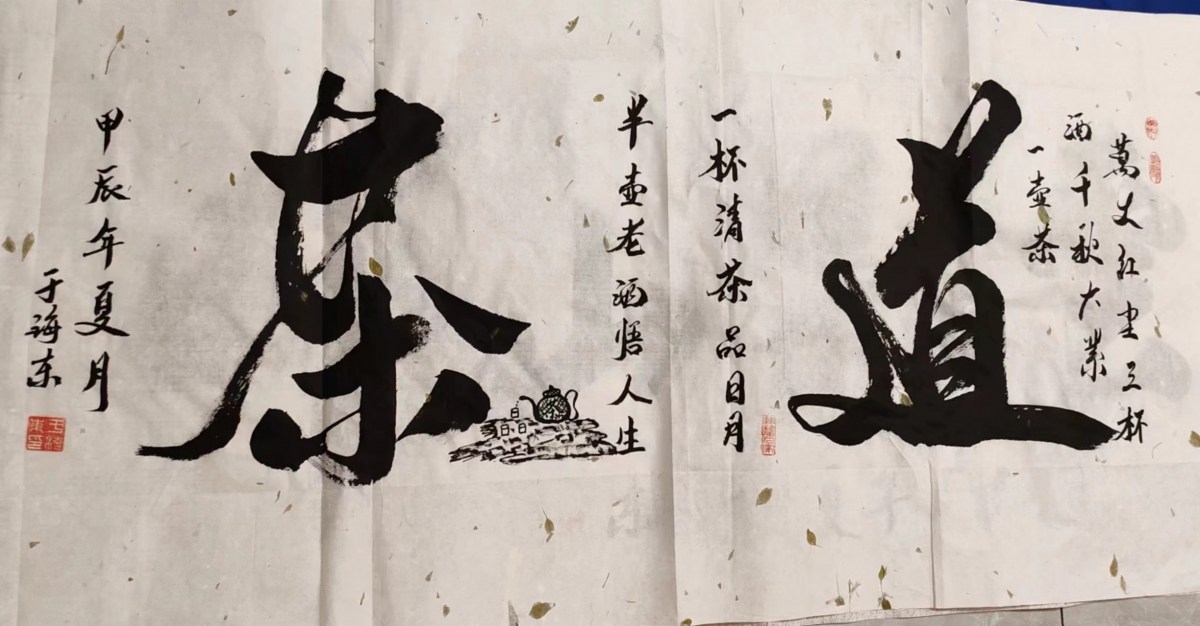 道
萬丈红尘三杯
酒千秋大業
一壶茶
一杯清茶品日月
半壶老酒悟人生
茶
甲辰年夏月
于海东